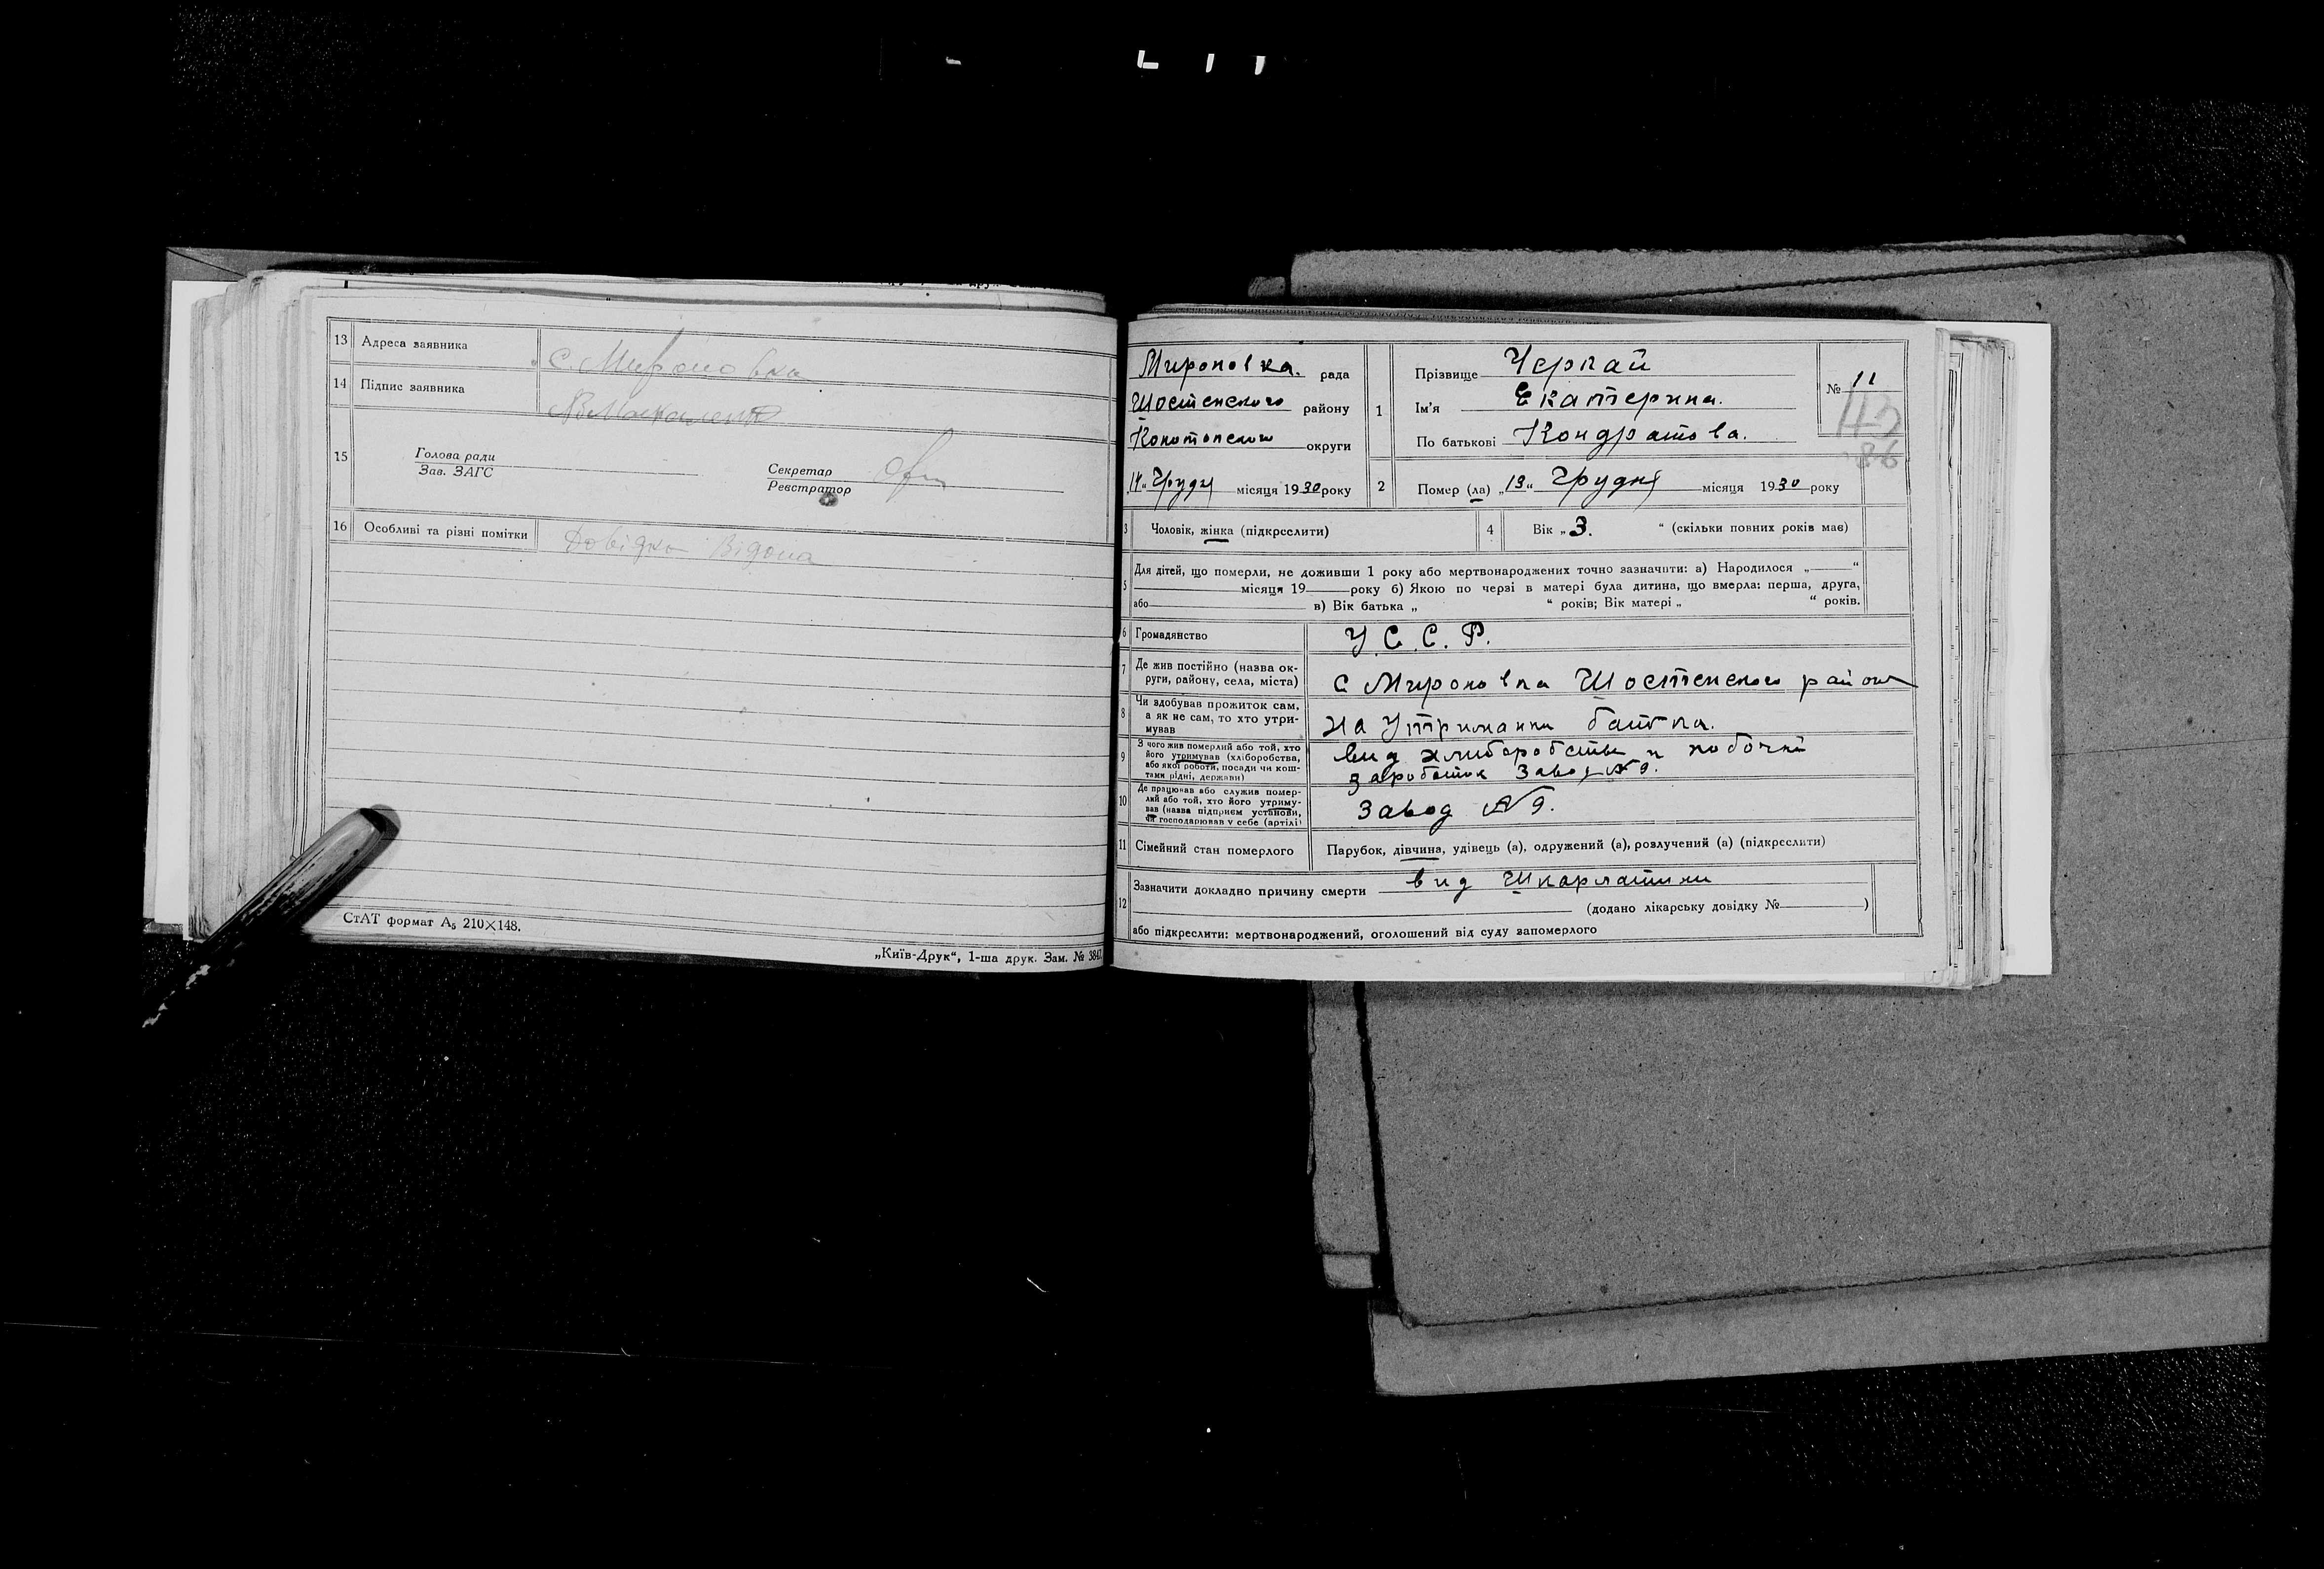 13 Адреса заявника с. Мироновка
14 Підпис заявника
15 Голова ради
Зав. ЗАГС
Секретар
Реєстратор
16 Особливі та різні помітки Довідка Відона
СтАТ формат А5 210×148.
„Київ-Друк“, 1-ша друк. Зам. № 3847.
Мироновка. рада
Шостенского району
Конотопского округи
„14“ Грудня місяця 1930 року
1 Прізвище Черпай
Ім'я Екатерина.
По батькові Кондратова.
№ 11
86
2 Помер (ла) „13“ Грудня місяця 1930 року
3 Чоловік, жінка (підкреслити)
4 Вік „3.“ (скільки повних років має)
5 Для дітей, що померли, не доживши 1 року або мертвонароджених точно зазначити: а) Народилося „ “
місяця 19 року б) Якою по черзі в матері була дитина, що вмерла: перша, друга,
або в) Вік батька „ “ років; Вік матері „ “ років.
6 Громадянство У.С.С.Р.
7 Де жив постійно (назва ок-
руги, району, села, міста) с Мироновка Шостенского района
8 Чи здобував прожиток сам,
а як не сам, то хто утри-
мував на Утримании батька.
9 З чого жив померлий або той, хто
його утримував (хліборобства,
або якої роботи, посади чи кош-
тами рідні, держави) вид хлиборобства и побочни
заробиток Завод №9.
10 Де працював або служив помер-
лий або той, хто його утриму-
вав (назва підприєм установи,
чи господарював у себе (артілі) Завод №9.
11 Сімейний стан померлого Парубок, дівчина, удівець (а), одружений (а), розлучений (а) (підкреслити)
12 Зазначити докладно причину смерти вид Шкарлатини
(додано лікарську довідку № )
або підкреслити: мертвонароджений, оголошений від суду запомерлого